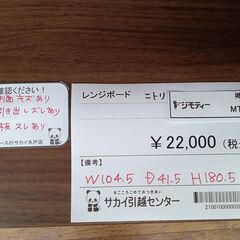 確認ください!
側面 キズあり
引き出しズレあり
板 スレあり
ースのサカイ水戸店
レンジボード ニトリ
ジモティー
MT
¥22,000 (税
【備考】
W104.5 D41.5 H180.5
まごころこめておつきあい
サカイ引越センター